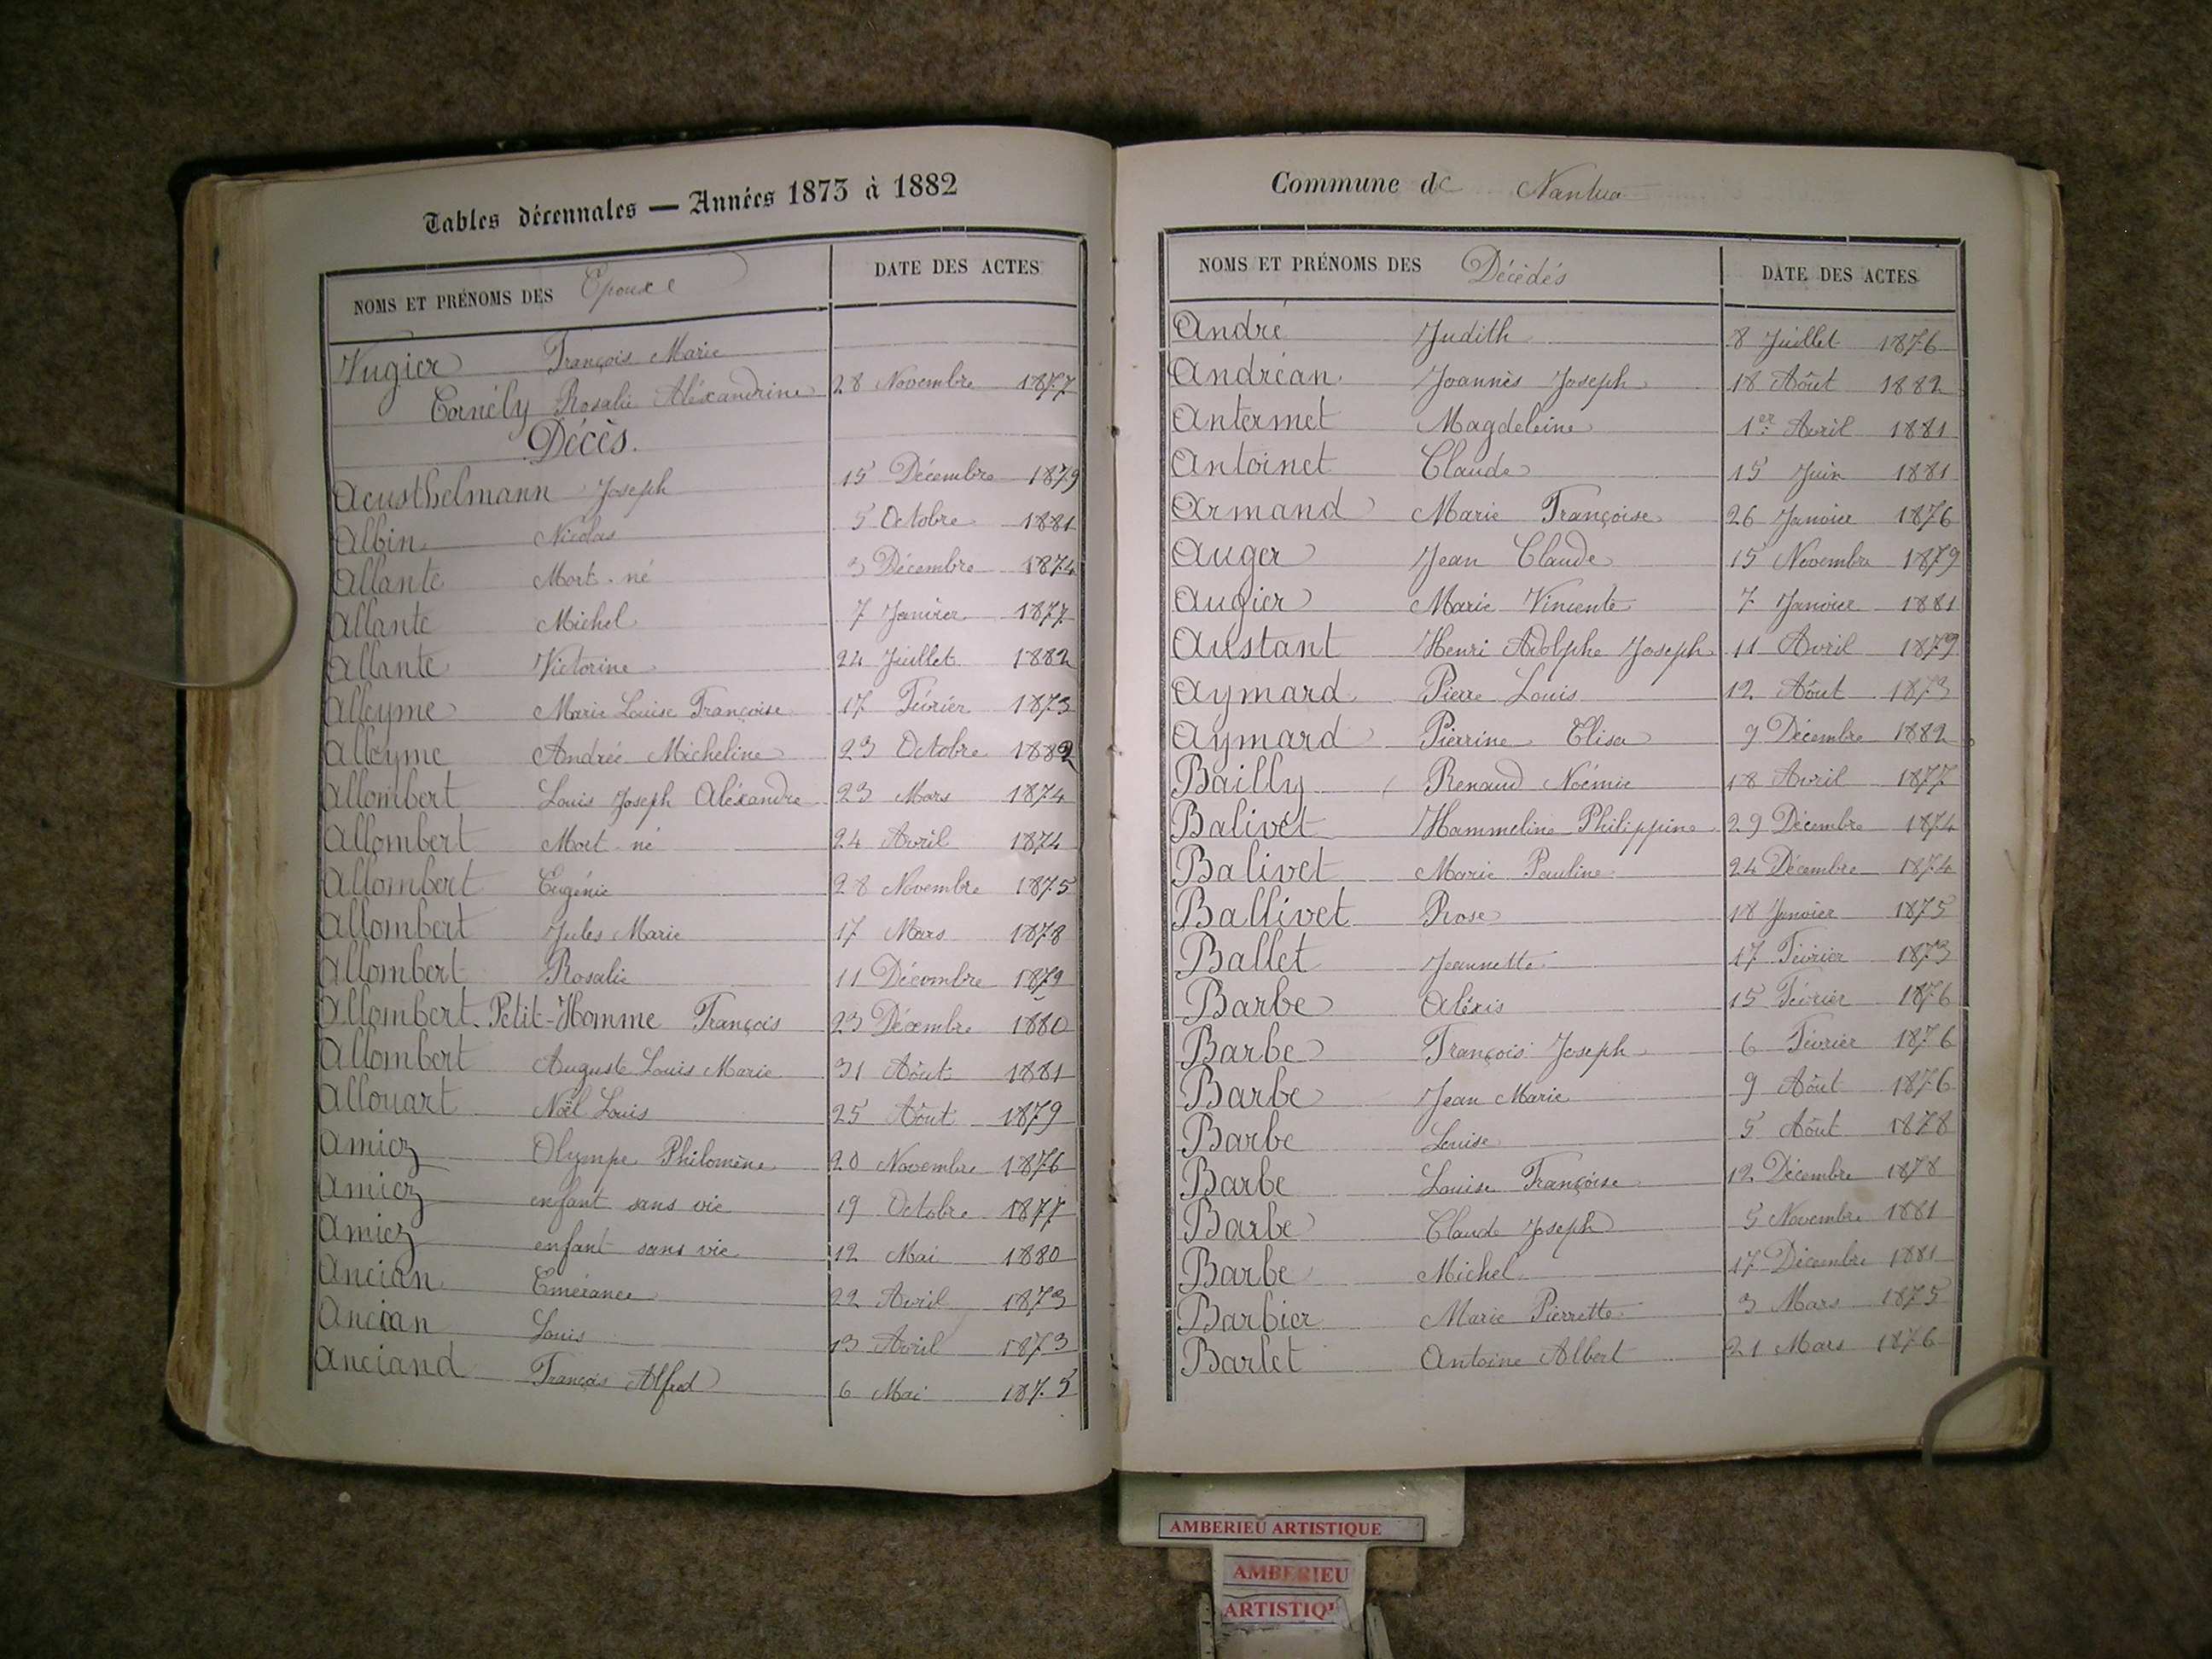 Tables décennales — Années 1873 à 1882
NOMS ET PRÉNOMS DES Epoux DATE DES ACTES
Vugier François Marie
Cornély Rosalie Aléxandrine 28 Novembre 1877
Décès.
Acusthelmann Joseph 15 Décembre 1879
Albin Nicolas 5 Octobre 1881
Allante Mort-né 3 Décembre 1874
Allante Michel 7 Janvier 1877
Allante Victorine 24 Juillet 1882
Alleyme Marie Louise Françoise 17 Février 1873
Alleyme Andrée Micheline 23 Octobre 1882
Allombert Louis Joseph Aléxandre 23 Mars 1874
Allombert Mort-né 24 Avril 1874
Allombert Eugénie 28 Novembre 1875
Allombert Jules Marie 17 Mars 1878
Allombert Rosalie 11 Décembre 1879
Allombert Petit-Homme François 23 Décembre 1880
Allombert Auguste Louis Marie 31 Aôut 1881
Allouart Noël Louis 25 Aôut 1879
Amiez Olympe Philomène 20 Novembre 1876
Amiez enfant sans vie 19 Octobre 1877
Amiez enfant sans vie 12 Mai 1880
Ancian Emérance 22 Avril 1873
Ancian Louis 13 Avril 1873
Anciand François Alfred 6 Mai 1875
Commune de Nantua
NOMS ET PRÉNOMS DES Décédés DATE DES ACTES
André Judith 8 Juillet 1876
Andréan Joannès Joseph 18 Aôut 1882
Antermet Magdeleine 1er Avril 1881
Antoinet Claude 15 Juin 1881
Armand Marie Françoise 26 Janvier 1876
Auger Jean Claude 15 Novembre 1879
Augier Marie Vincente 7 Janvier 1881
Austant Henri Adolphe Joseph 11 Avril 1879
Aymard Pierre Louis 12 Aôut 1873
Aymard Pierrine Elisa 9 Décembre 1882
Bailly Renaud Noémie 18 Avril 1877
Balivet Hammeline Philippine 29 Décembre 1874
Balivet Marie Pauline 24 Décembre 1874
Ballivet Rose 18 Janvier 1875
Ballet Jeannette 17 Février 1873
Barbe Aléxis 15 Février 1876
Barbe François Joseph 6 Février 1876
Barbe Jean Marie 9 Aôut 1876
Barbe Louise 5 Aôut 1878
Barbe Louise Françoise 12 Décembre 1878
Barbe Claude Joseph 5 Novembre 1881
Barbe Michel 17 Décembre 1881
Barbier Marie Pierrette 3 Mars 1875
Barlet Antoine Albert 21 Mars 1876
AMBERIEU ARTISTIQUE
AMBERIEU
ARTISTIQU